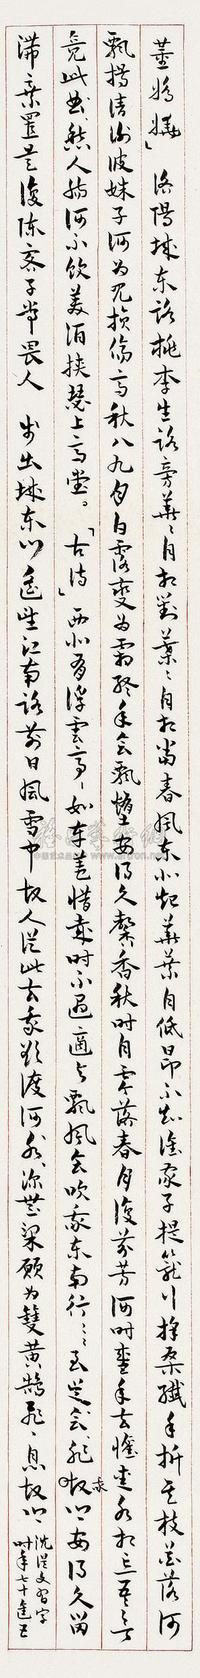 董嬌嬈」洛陽城東路桃李生路旁華〻自相對葉〻自相當春風東北起華葉自低昂不知誰家子提籠行採桑纖手折其枝花落何
飄揚請謝彼姝子何為見損傷高秋八九月白露變為霜終年會飄墮安得久馨香秋時自零落春月復芬芳何時盛年去懽愛永相忘吾欲
竟此曲〻愁人腸河不飲美酒挾瑟上高堂。「古詩」西北有浮雲亭〻如車蓋惜哉時不遇適與飄風會吹我東南行〻〻至吳會〻非故鄉安得久留
滯棄置莫復陳客子常畏人 步出城東門遙望江南路前日風雪中故人從此去我欲渡河水〻深無梁願為雙黃鵠飛〻還故鄉
沈從文習字
時年七十進五